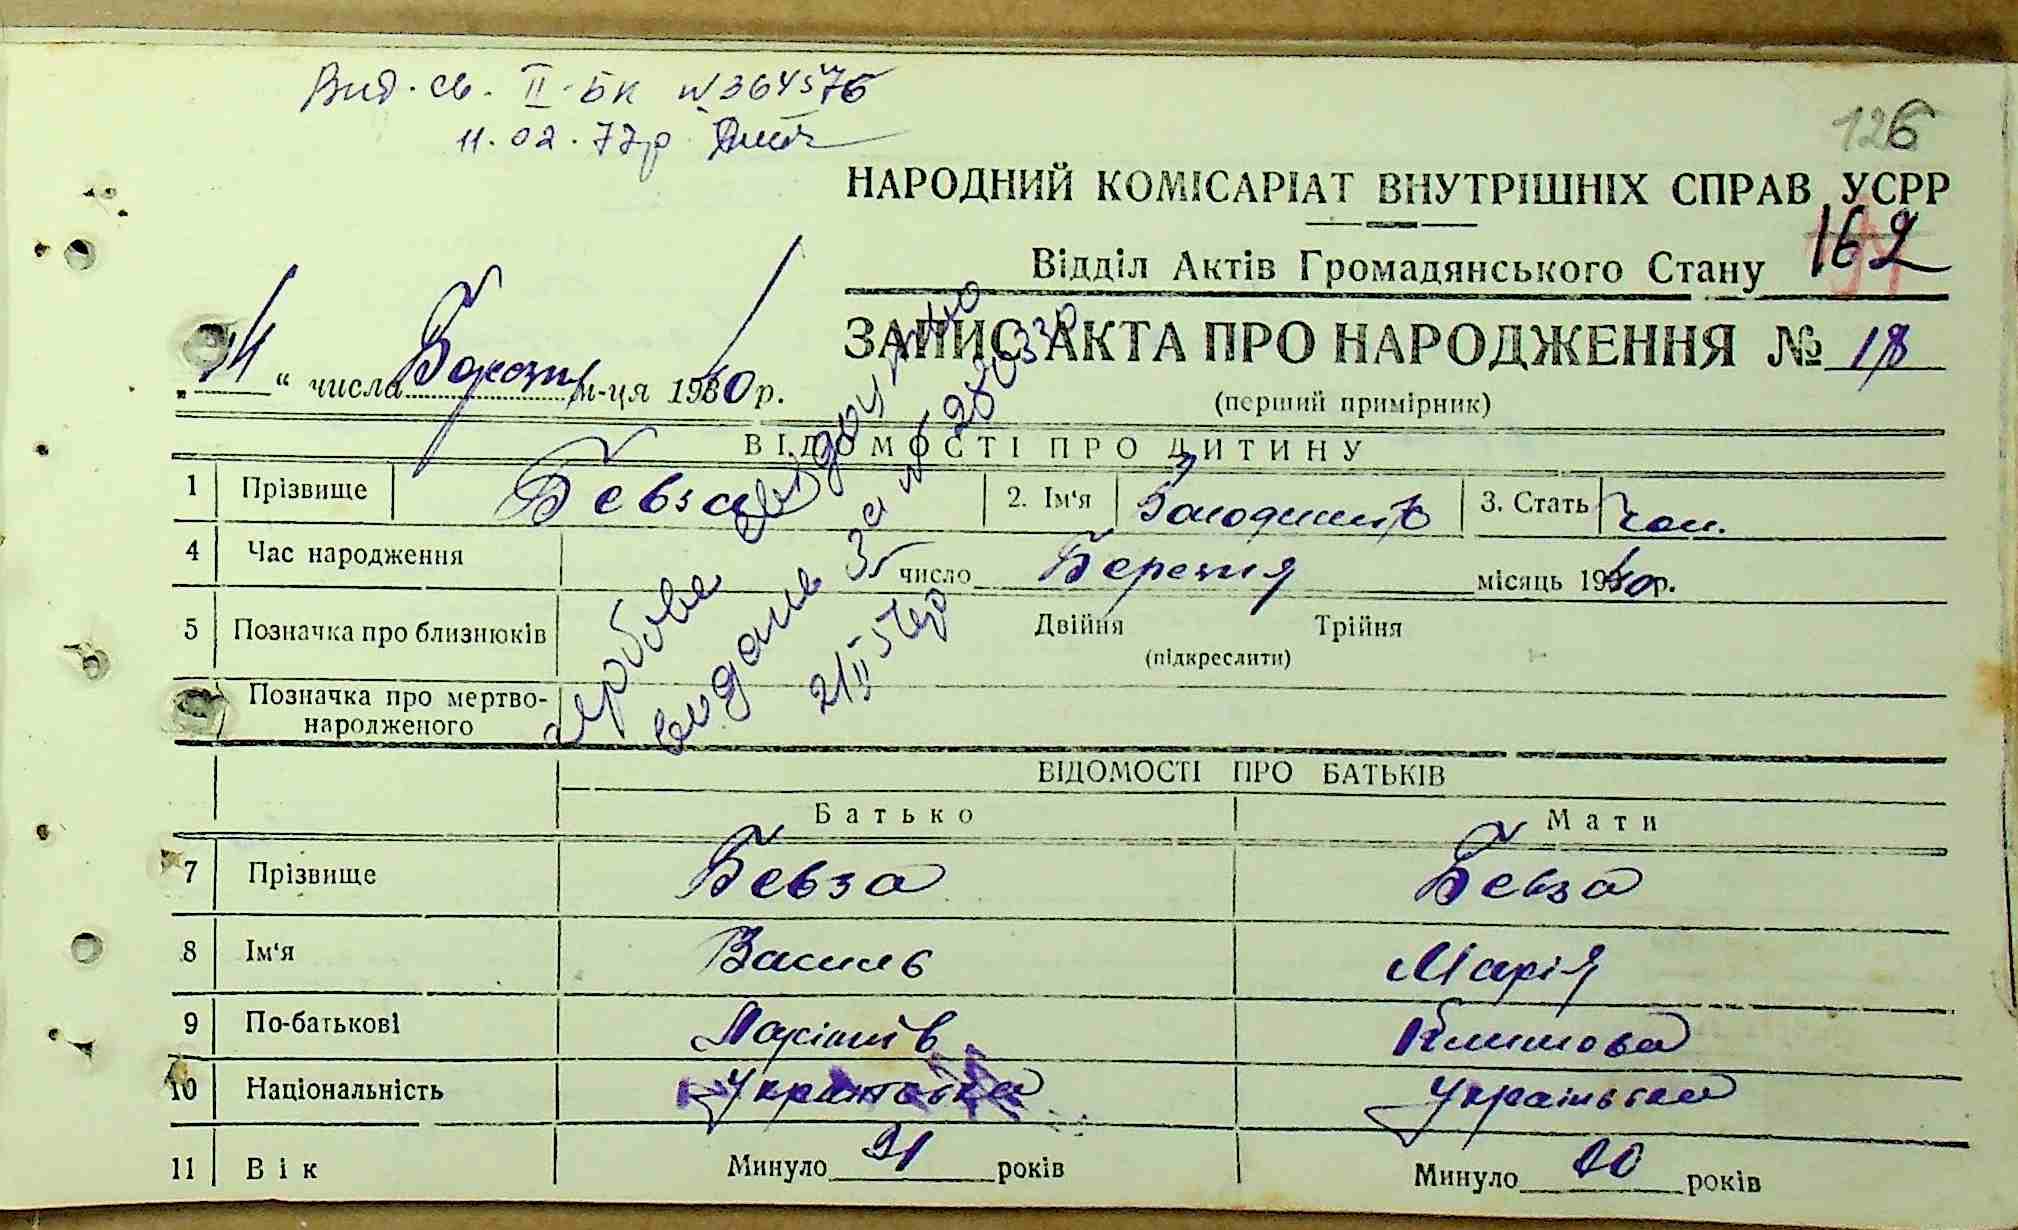 Вид. св. II-БК № 364576
11.02.72р.
126
НАРОДНИЙ КОМІСАРІАТ ВНУТРІШНІХ СПРАВ УСРР
Відділ Актів Громадянського Стану 162
ЗАПИС АКТА ПРО НАРОДЖЕННЯ № 18
(перший примірник)
„ “ числа м-ця 1940 р.
ВІДОМОСТІ ПРО ДИТИНУ
1 Прізвище Бевза 2. Ім'я Володимир 3. Стать чол.
4 Час народження 5 число Березня місяць 1940 р.
5 Позначка про близнюків Двійня Трійня
(підкреслити)
Позначка про мертво-
народженого
гербове свідоцтво
видане за №
21/II 54р
ВІДОМОСТІ ПРО БАТЬКІВ
Батько Мати
7 Прізвище Бевза Бевза
8 Ім'я Василь Марія
9 По-батькові Климова
10 Національність Українська Українська
11 Вік Минуло років Минуло 20 років